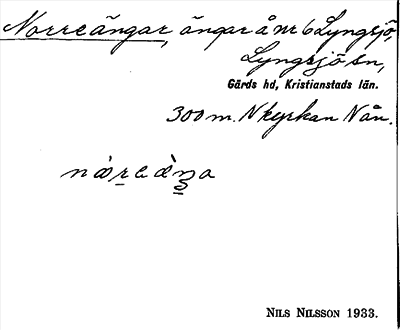 Norreängar, ängar å nr 6 Lyngsjö,
Lyngsjö sn,
Gärds hd, Kristianstads län.
300 m. N kyrkan N ån.
NILS NILSSON 1933.